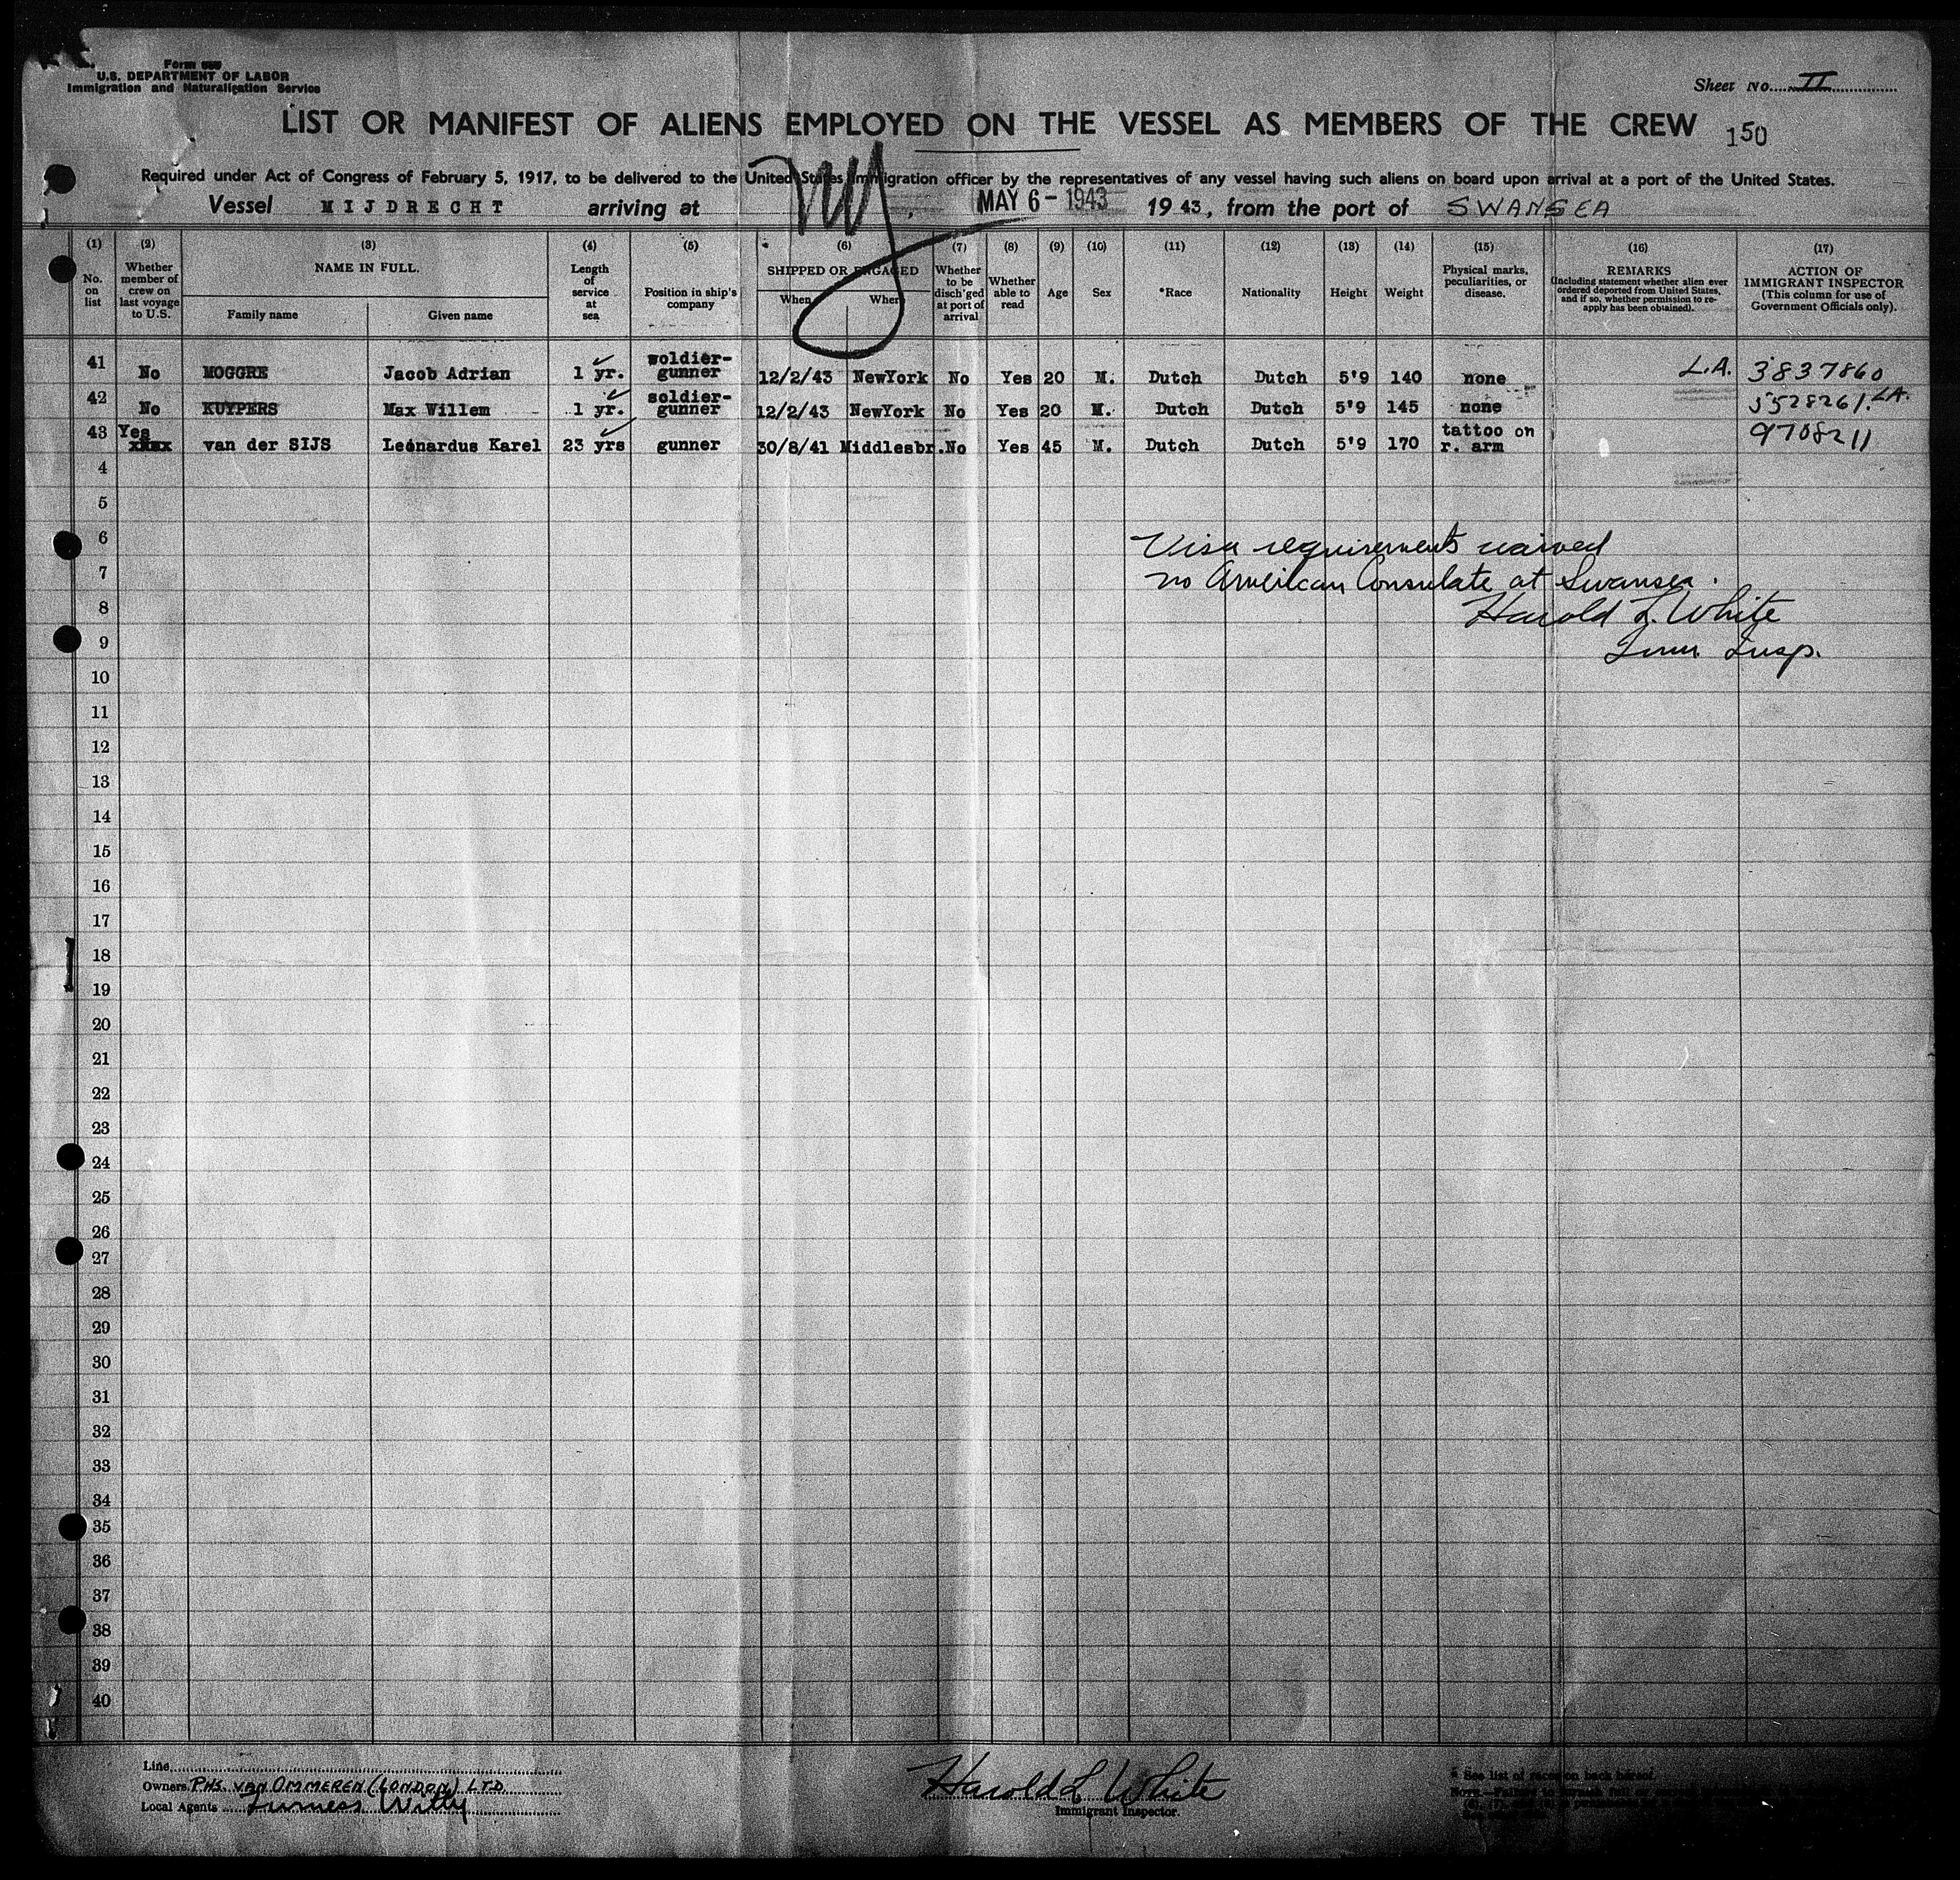 U.S. DEPARTMENT OF LABOR
Immigration and Naturalization Service
Sheet No. II
LIST OR MANIFEST OF ALIENS EMPLOYED ON THE VESSEL AS MEMBERS OF THE CREW
150
Required under Act of Congress of February 5, 1917, to be delivered to the United States Immigration officer by the representatives of any vessel having such aliens on board upon arrival at a port of the United States.
Vessel MIJDRECHT arriving at NY, MAY 6 - 1943 1943, from the port of SWANSEA
(1) (2) (3) (4) (5) (6) (7) (8) (9) (10) (11) (12) (13) (14) (15) (16) (17)
No. on list
Whether member of crew on last voyage to U.S.
NAME IN FULL.
Family name
Given name
Length of service at sea
Position in ship's company
SHIPPED OR ENGAGED
When
Where
Whether to be disch'ged at port of arrival
Whether able to read
Age
Sex
*Race
Nationality
Height
Weight
Physical marks, peculiarities, or disease.
REMARKS
(Including statement whether alien ever ordered deported from United States, and if so, whether permission to re-apply has been obtained).
ACTION OF IMMIGRANT INSPECTOR
(This column for use of Government Officials only).
41 No MOGGRE Jacob Adrian 1 yr. soldier-gunner 12/2/43 NewYork No Yes 20 M. Dutch Dutch 5'9 140 none L.A. 3837860
42 No KUYPERS Max Willem 1 yr. soldier-gunner 12/2/43 NewYork No Yes 20 M. Dutch Dutch 5'9 145 none 5528261. L.A.
43 Yes van der SIJS Leonardus Karel 23 yrs gunner 30/8/41 Middlesbr. No Yes 45 M. Dutch Dutch 5'9 170 tattoo on r. arm 9708211
4
5
6
Visa requirements waived
7
no American Consulate at Swansea.
8
Harold L. White
9
Imm. Insp.
10
11
12
13
14
15
16
17
18
19
20
21
22
23
24
25
26
27
28
29
30
31
32
33
34
35
36
37
38
39
40
Line
Owners PHS. VAN OMMEREN (LONDON) LTD
Local Agents Furness Withy
Harold L White
Immigrant Inspector.
* See list of races on back hereof.